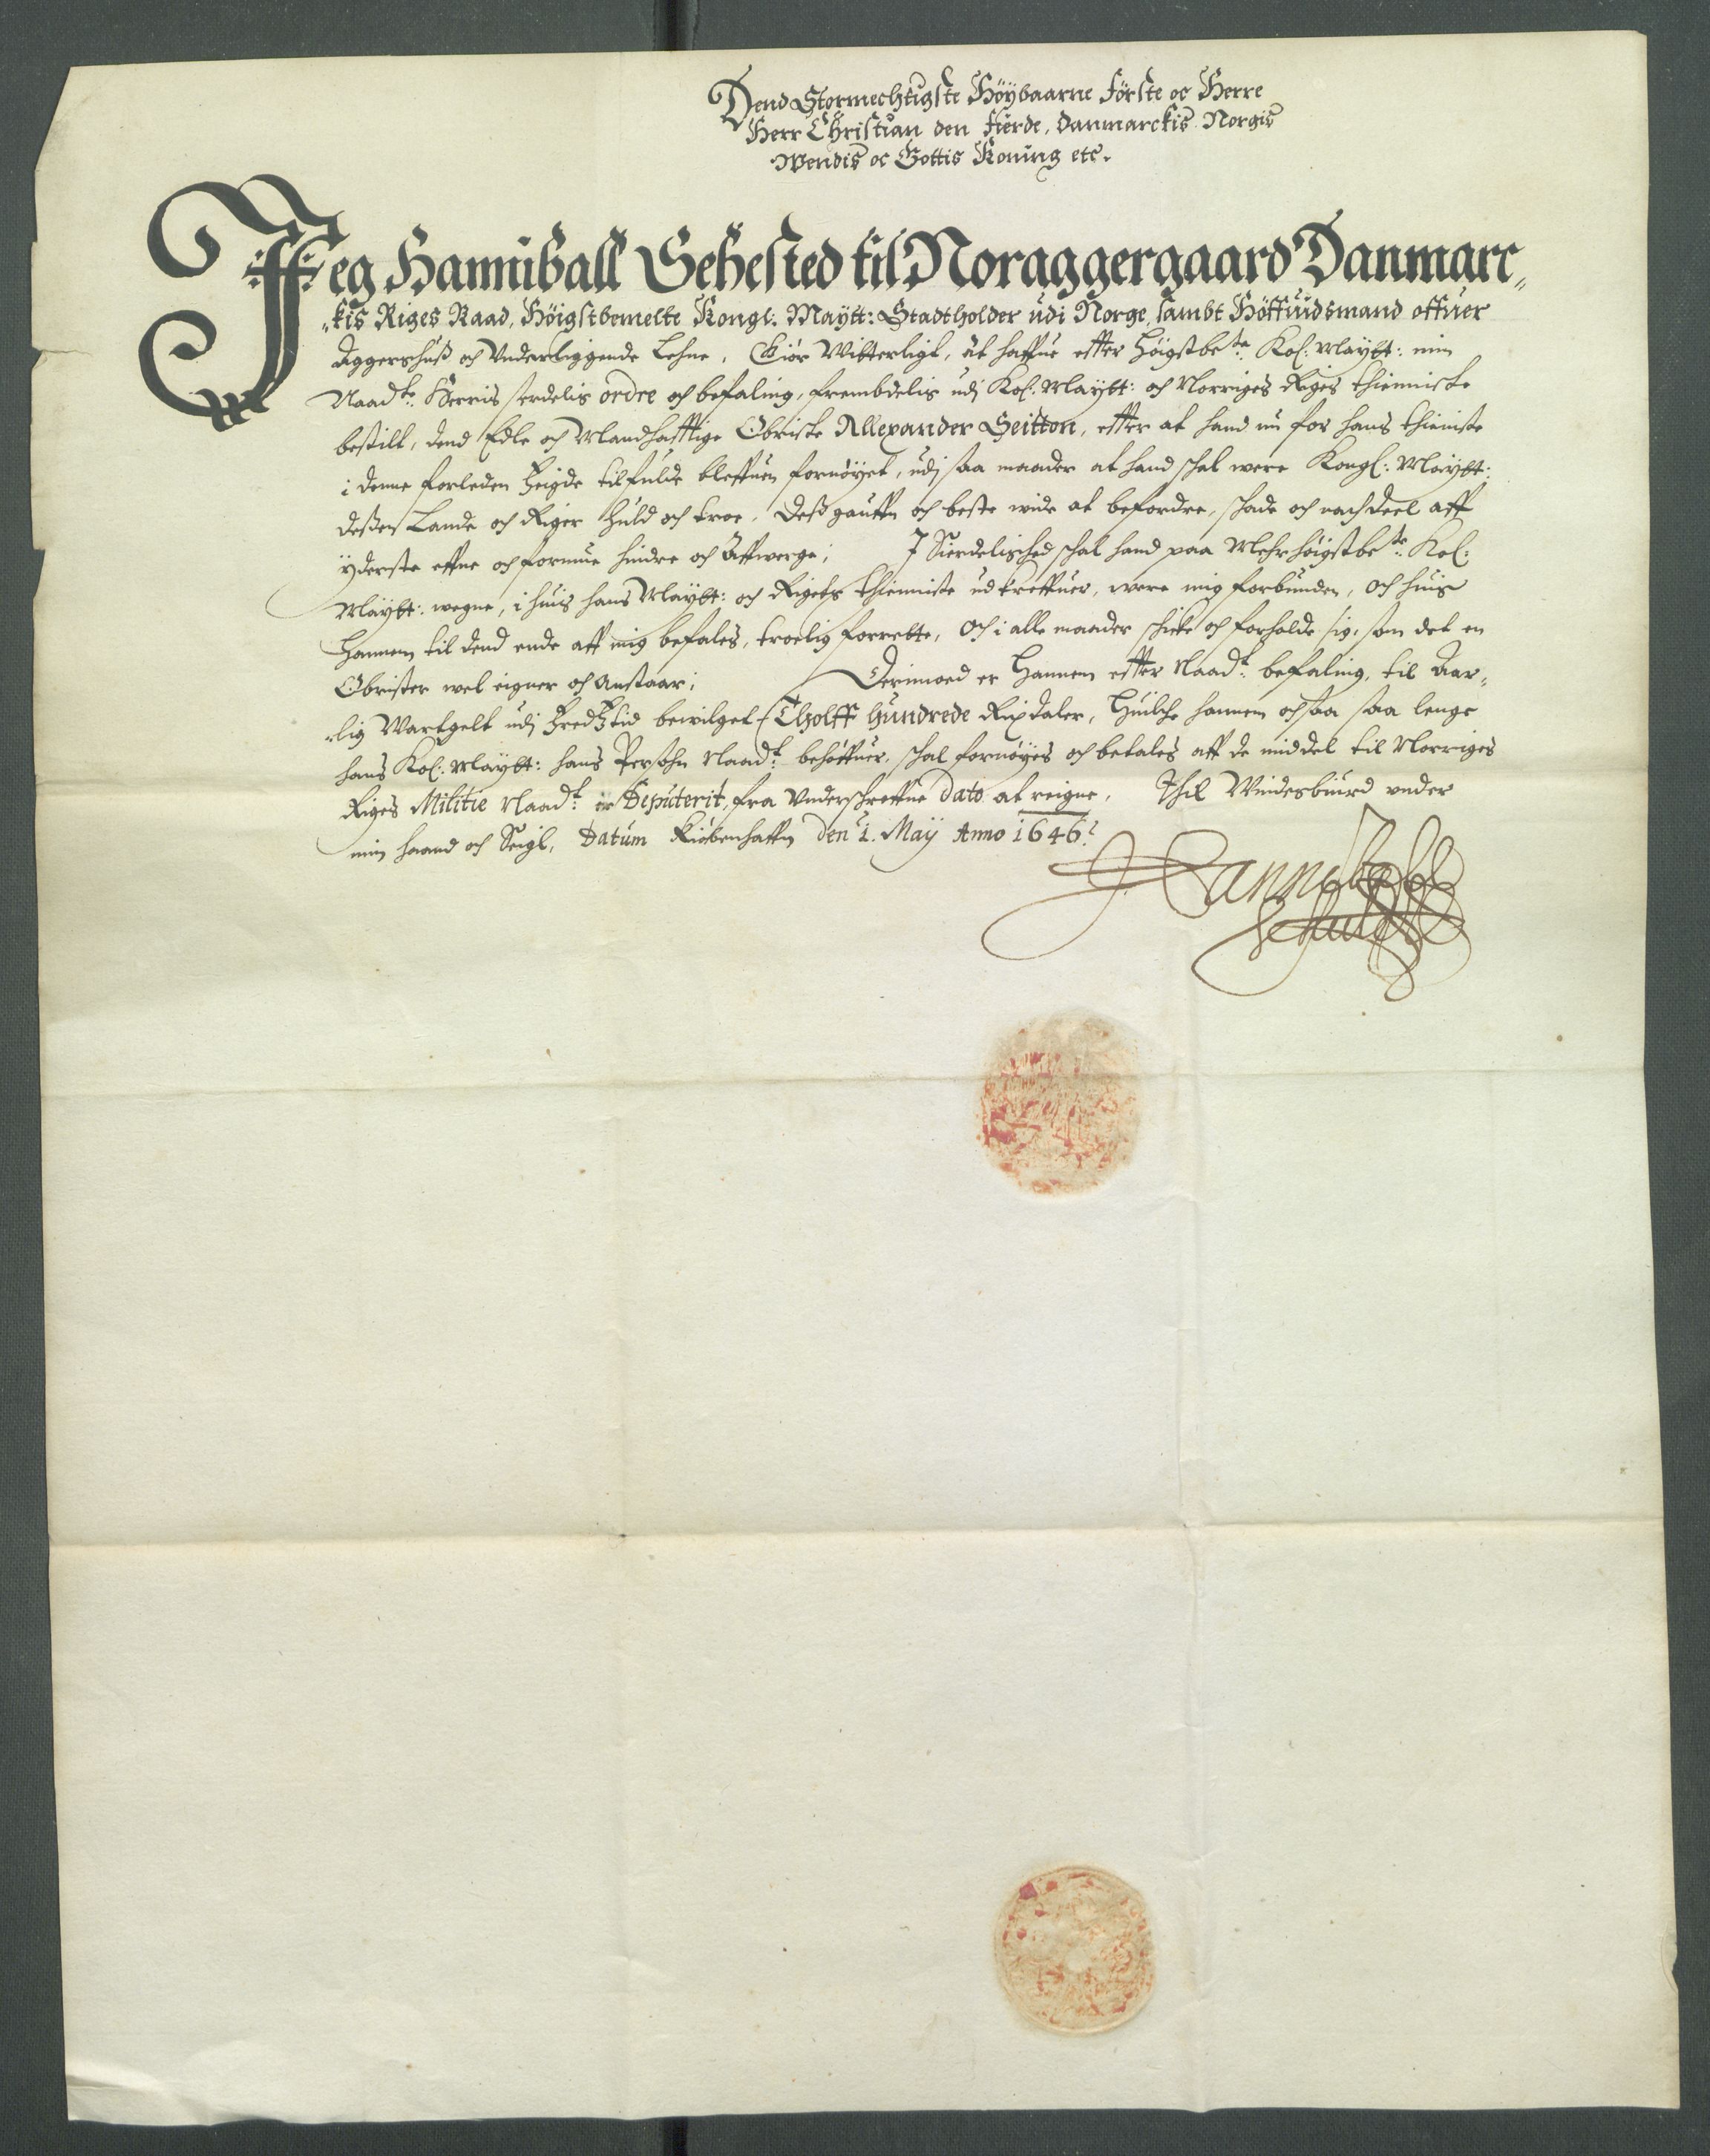 Dend Stormechtigste Höÿbaarne Förste oc Herre
Herr Christian den fierde, Danmarckis Norgis
Wendis oc Gottis Koning etc.
Jeg Hanniball Sehested til Noraggergaard Danmarc„
„kis Riges Raad, Höigstbemelte Kongl: Maÿtt: Stadtholder udi Norge, sambt Höffuidsmand offuer
Aggershuß och Underliggende Lehne, Giör Witterligt, at haffue effter Högstbete Kol: Maÿtt: min
Naadte: Herris serdelis ordre och befaling, frembdelis udj Kol: Maÿtt: och Norriges Riges thienniste
bestilt, dend Edle och Mandhafftige Obriste Allexander Seitton, effter at hand nu for hans thieniste
i denne forleden Feigde tilfulde bleffuen fornöÿet, udj saa maader at hand schal were Kongl: Maÿtt:
deßen Lande och Riger huld och troe, Deß gauffn och beste wide at befordre, schade och nachdeel aff
ÿderste effne och formue hindre och Affwerge; J Sierdelished schal hand paa Mehrhöigstbete: Kol:
Maÿtt: wegne, i huis hans Maÿtt: och Rigets thienniste udkreffuer, were mig forbunden, och huis
hannem til dend ende aff mig befales, troelig forrette, Och i alle maader schicke och forholde sig, som det en
Obrister wel eigner och Anstaar; Derimoed er hannem effter Naadt: befaling, til Aar„
„lig Wartgelt udj Fredtztid bewilget Tholff hundrede Rixdaler, Huilche hannem ochsaa saa lenge
hans Kol: Maÿtt: hans Persohn Naadt: behöffuer, schal fornöÿes och betales aff de middel til Norriges
Riges Militie Naadt: er Deputerit, fra Underschreffne dato at reigne, Thil Windesbiurd under
min haand och Seigl, Datum Kiöbenhaffn den 1. Maÿ Anno 1646
Hannibal
Sehested